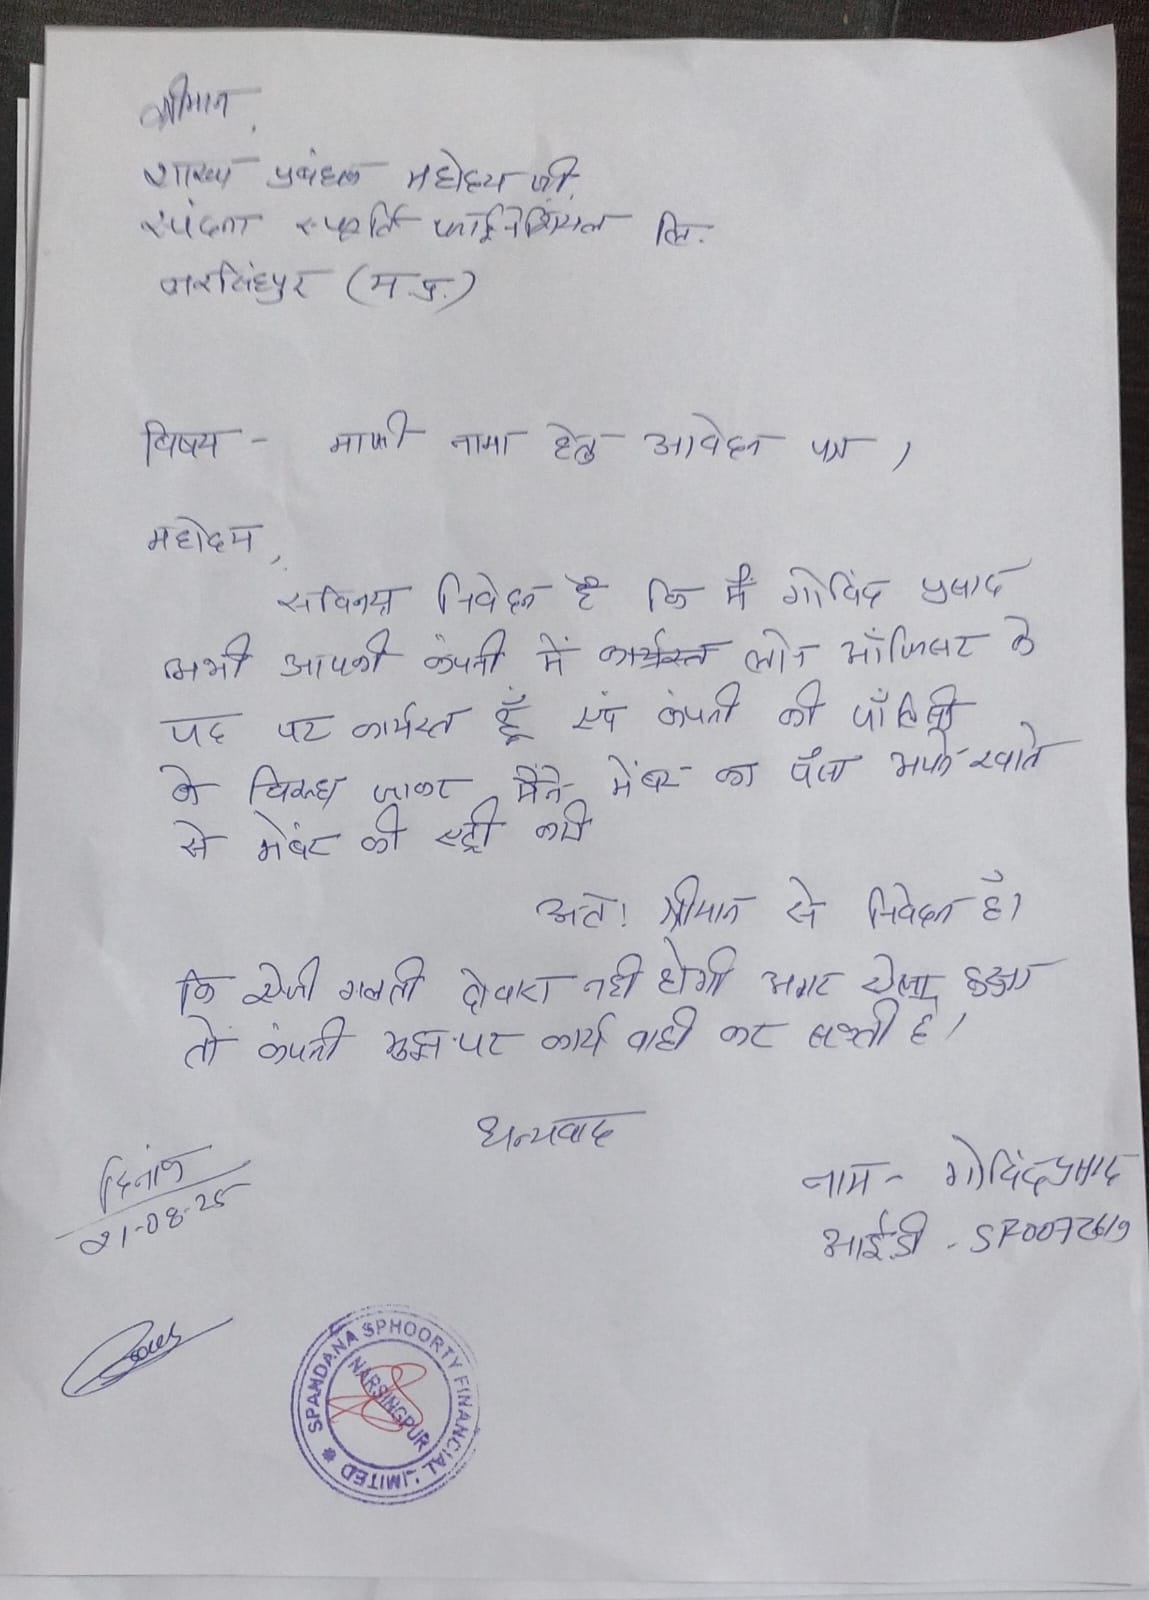 श्रीमान,
शाखा प्रबंधक महोदय जी,
स्पंदना स्फूर्ति फाईनेंशियल लि.
नरसिंहपुर (म.प्र.)
विषय - माफी नामा हेतु आवेदन पत्र ,
महोदय,
सविनय निवेदन है कि मैं गोविंद प्रसाद
अभी आपकी कंपनी में कार्यरत लोन ऑफिसर के
पद पर कार्यरत हूँ एवं कंपनी की पॉलिसी
के विरुध जाकर मैंने मेंबर का पैसा अपने खाते
से मेंबर की एंट्री करी
अतः श्रीमान से निवेदन है।
कि ऐसी गलती दोबारा नही होगी अगर ऐसा हुआ
तो कंपनी मुझ पर कार्य वाही कर सकती है।
धन्यवाद
दिनांक
21-08-25
नाम - गोविंद प्रसाद
आई.डी - SF0072619
SPANDANA SPHOORTY FINANCIAL LIMITED
NARSINGPUR